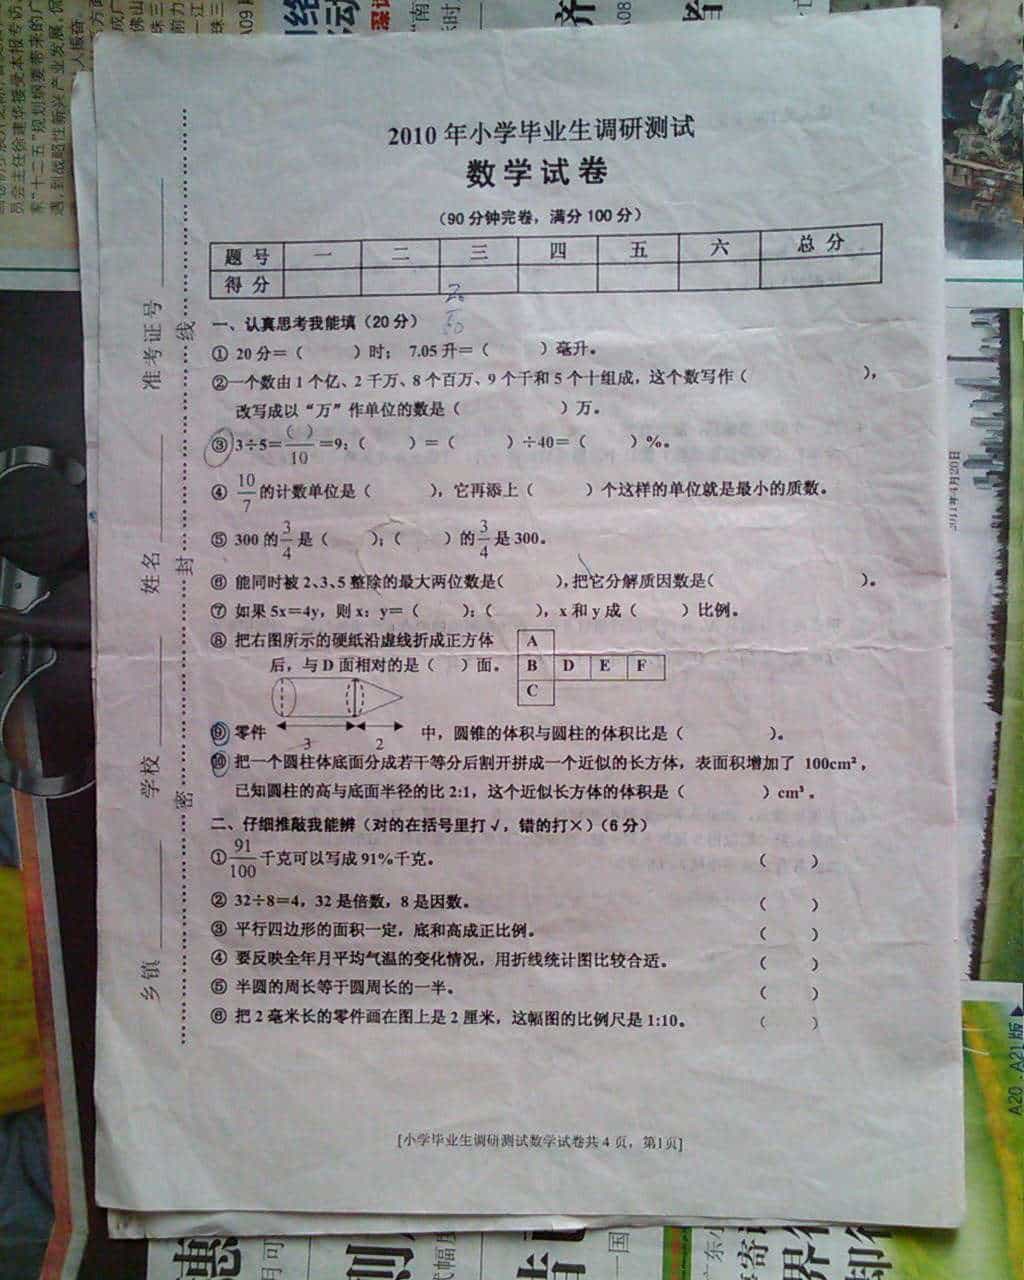 2010 年小学毕业生调研测试
数学试卷
（90 分钟完卷，满分 100 分）
题 号 一 二 三 四 五 六 总 分
得 分
一、认真思考我能填（20 分）
① 20 分＝（ ）时； 7.05 升＝（ ）毫升。
②一个数由 1 个亿、2 千万、8 个百万、9 个千和 5 个十组成，这个数写作（ ），
改写成以“万”作单位的数是（ ）万。
③ 3÷5＝( )/10＝9：（ ）＝（ ）÷40＝（ ）%。
④ 10/7 的计数单位是（ ），它再添上（ ）个这样的单位就是最小的质数。
⑤ 300 的 3/4 是（ ）；（ ）的 3/4 是 300。
⑥ 能同时被 2、3、5 整除的最大两位数是（ ），把它分解质因数是（ ）。
⑦ 如果 5x＝4y，则 x：y＝（ ）：（ ），x 和 y 成（ ）比例。
⑧ 把右图所示的硬纸沿虚线折成正方体
后，与 D 面相对的是（ ）面。
A
B D E F
C
⑨ 零件 3 2 中，圆锥的体积与圆柱的体积比是（ ）。
⑩ 把一个圆柱体底面分成若干等分后割开拼成一个近似的长方体，表面积增加了 100cm²，
已知圆柱的高与底面半径的比 2:1，这个近似长方体的体积是（ ）cm³。
二、仔细推敲我能辨（对的在括号里打√，错的打×）（6 分）
① 91/100 千克可以写成 91%千克。 （ ）
② 32÷8＝4，32 是倍数，8 是因数。 （ ）
③ 平行四边形的面积一定，底和高成正比例。 （ ）
④ 要反映全年月平均气温的变化情况，用折线统计图比较合适。 （ ）
⑤ 半圆的周长等于圆周长的一半。 （ ）
⑥ 把 2 毫米长的零件画在图上是 2 厘米，这幅图的比例尺是 1:10。 （ ）
[小学毕业生调研测试数学试卷共 4 页，第1页]
乡镇 学校 姓名 准考证号
密 封 线
2011年4月20日
A20．A21版
A09
A08